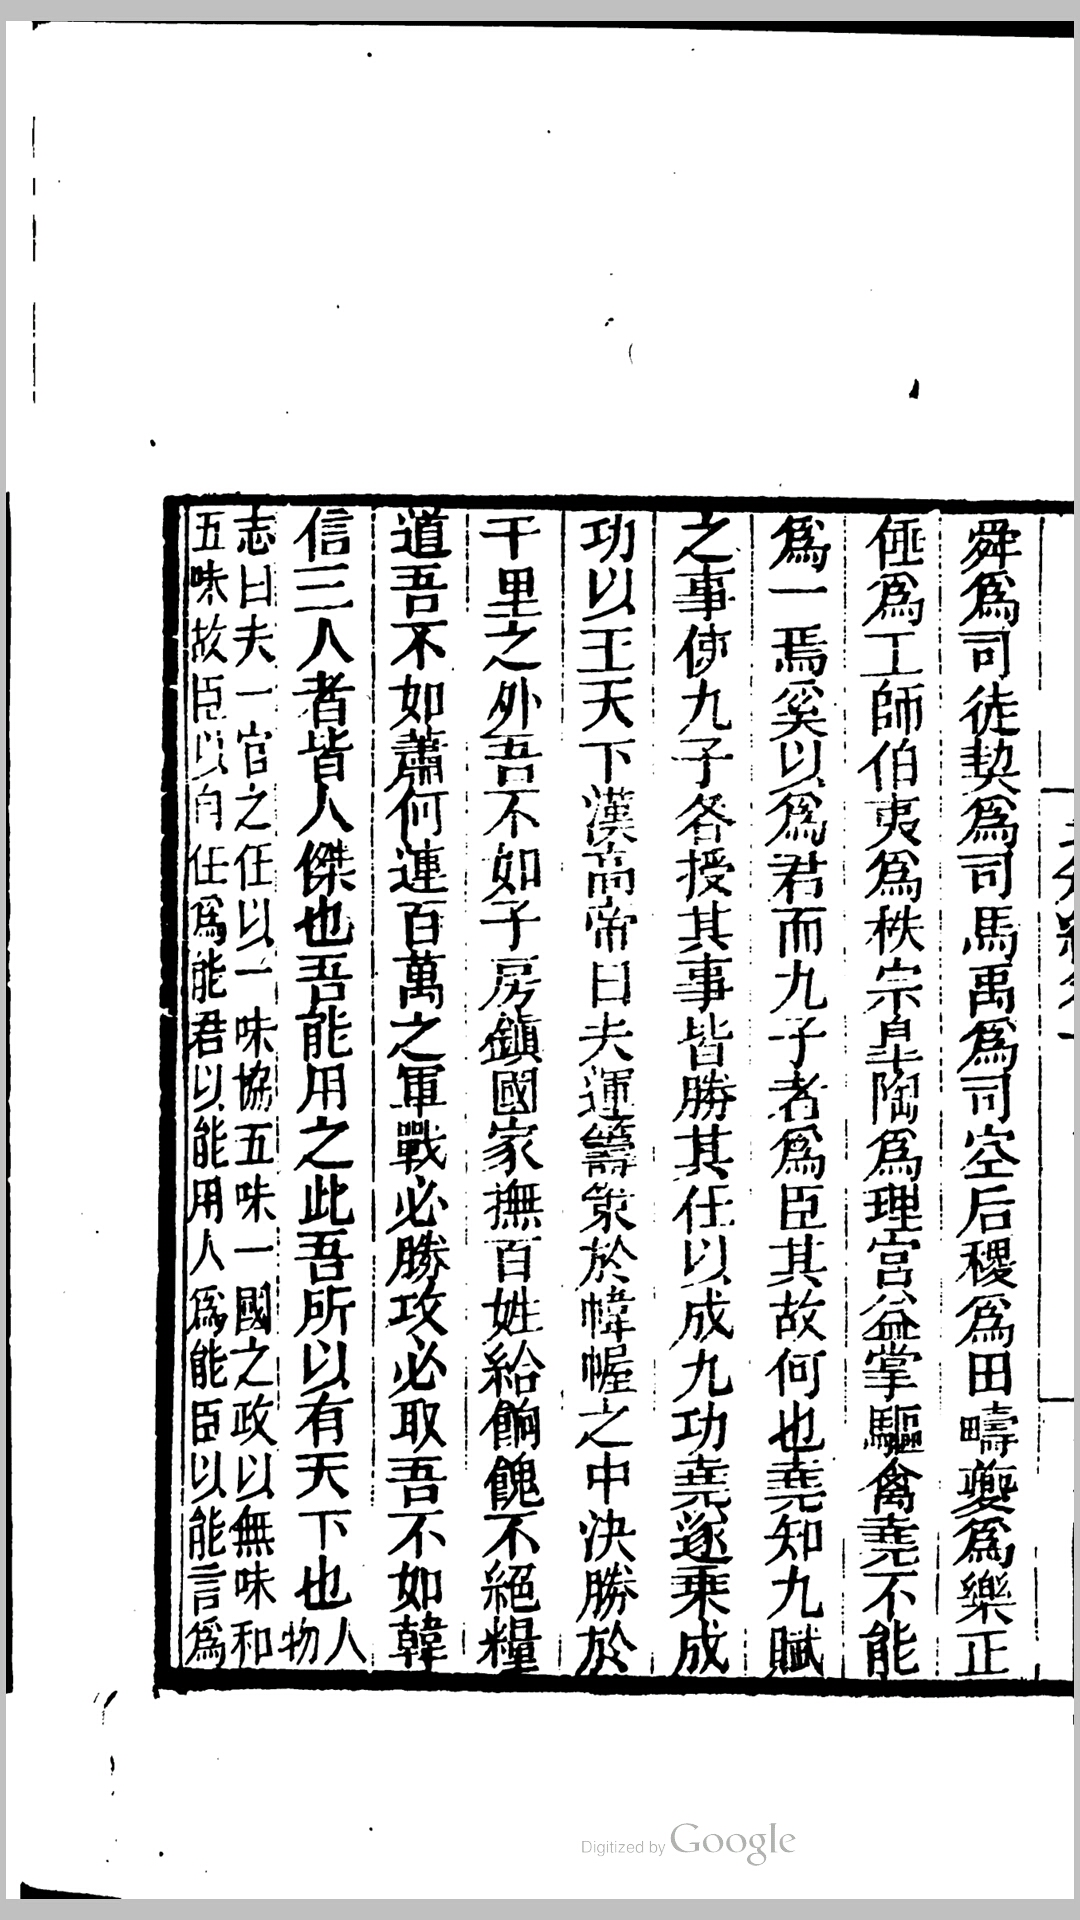 舜爲司徒契爲司馬禹爲司空后稷爲田疇夔爲樂正
倕爲工師伯夷爲秩宗皐陶爲理官益掌驅禽堯不能
爲一焉奚以爲君而九子者爲臣其故何也堯知九賦
之事使九子各授其事皆勝其任以成九功堯遂乗成
功以王天下漢高帝曰夫運籌策於幃幄之中決勝於
千里之外吾不如子房鎮國家撫百姓給餉餽不絕糧
道吾不如蕭何連百萬之軍戰必勝攻必取吾不如韓
信三人者皆人傑也吾能用之此吾所以有天下也人
物
志曰夫一官之任以一味協五味一國之政以無味和
五味故臣以自任爲能君以能用人爲能臣以能言爲
Digitized by Google